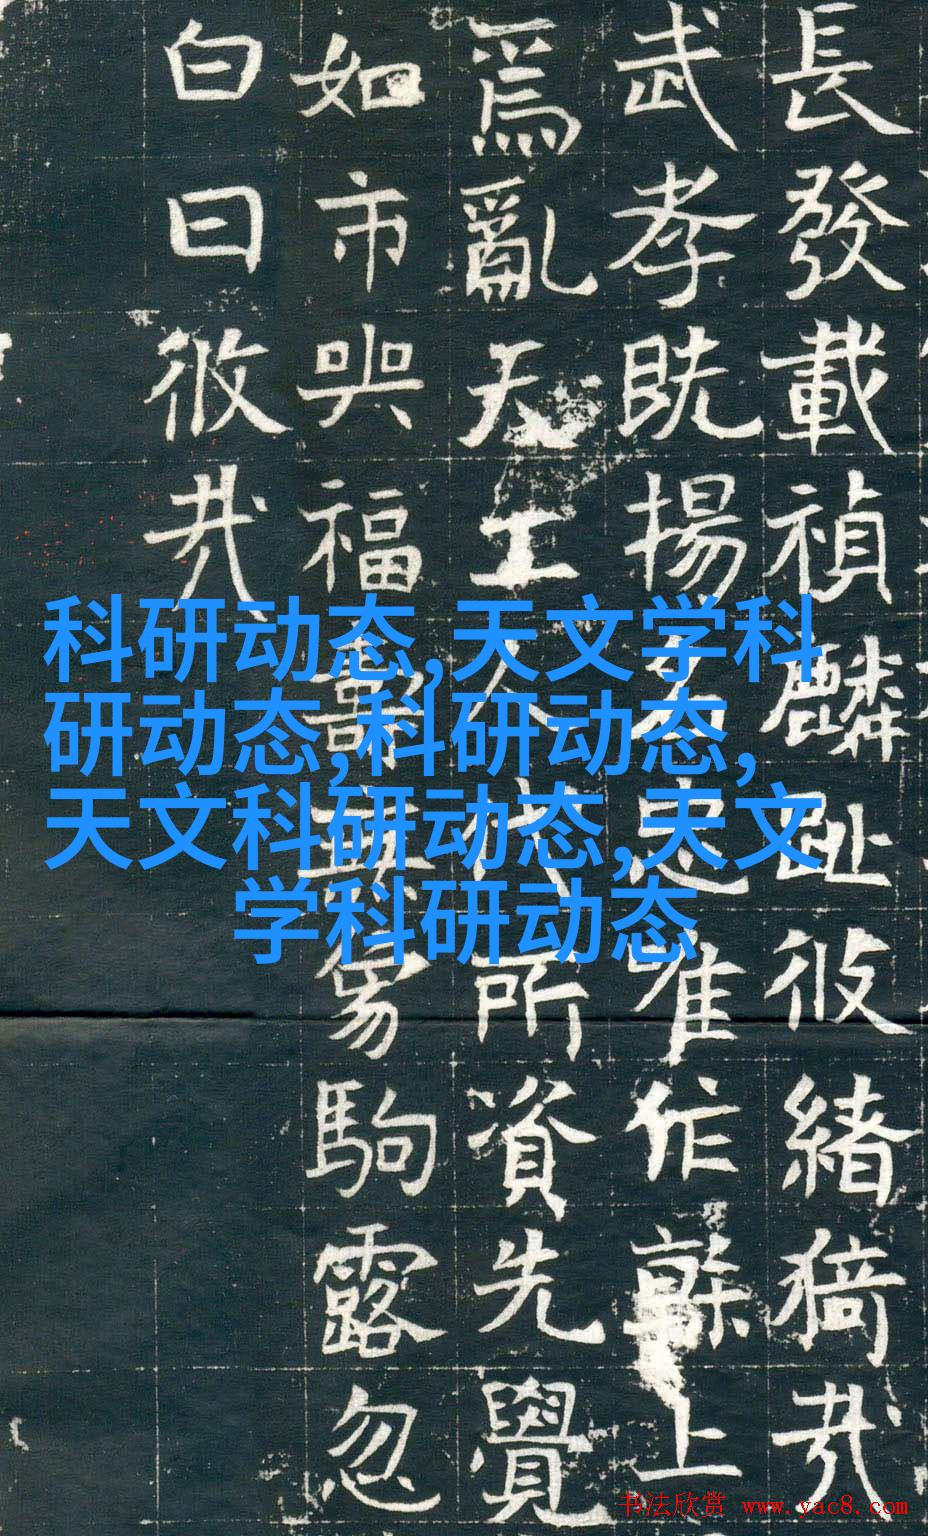 長發載禎麟趾彼緒猗哉
武孝既揚名忠唯作幹上
爲亂天工人代所資先覺
如市與福壽無易駒露忽
白日哉
科研动态,天文学科
研动态,科研动态,
天文科研动态,天文
学科研动态
书法欣赏 www.yac8.com